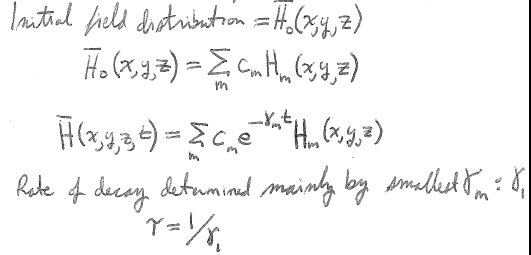 Initial field distribution = H̅₀(x,y,z)
H̅₀(x,y,z) = Σₘ cₘ Hₘ(x,y,z)
H̅(x,y,z,t) = Σₘ cₘ e^(-γₘt) Hₘ(x,y,z)
Rate of decay determined mainly by smallest γₘ : γ₁
τ = 1/γ₁